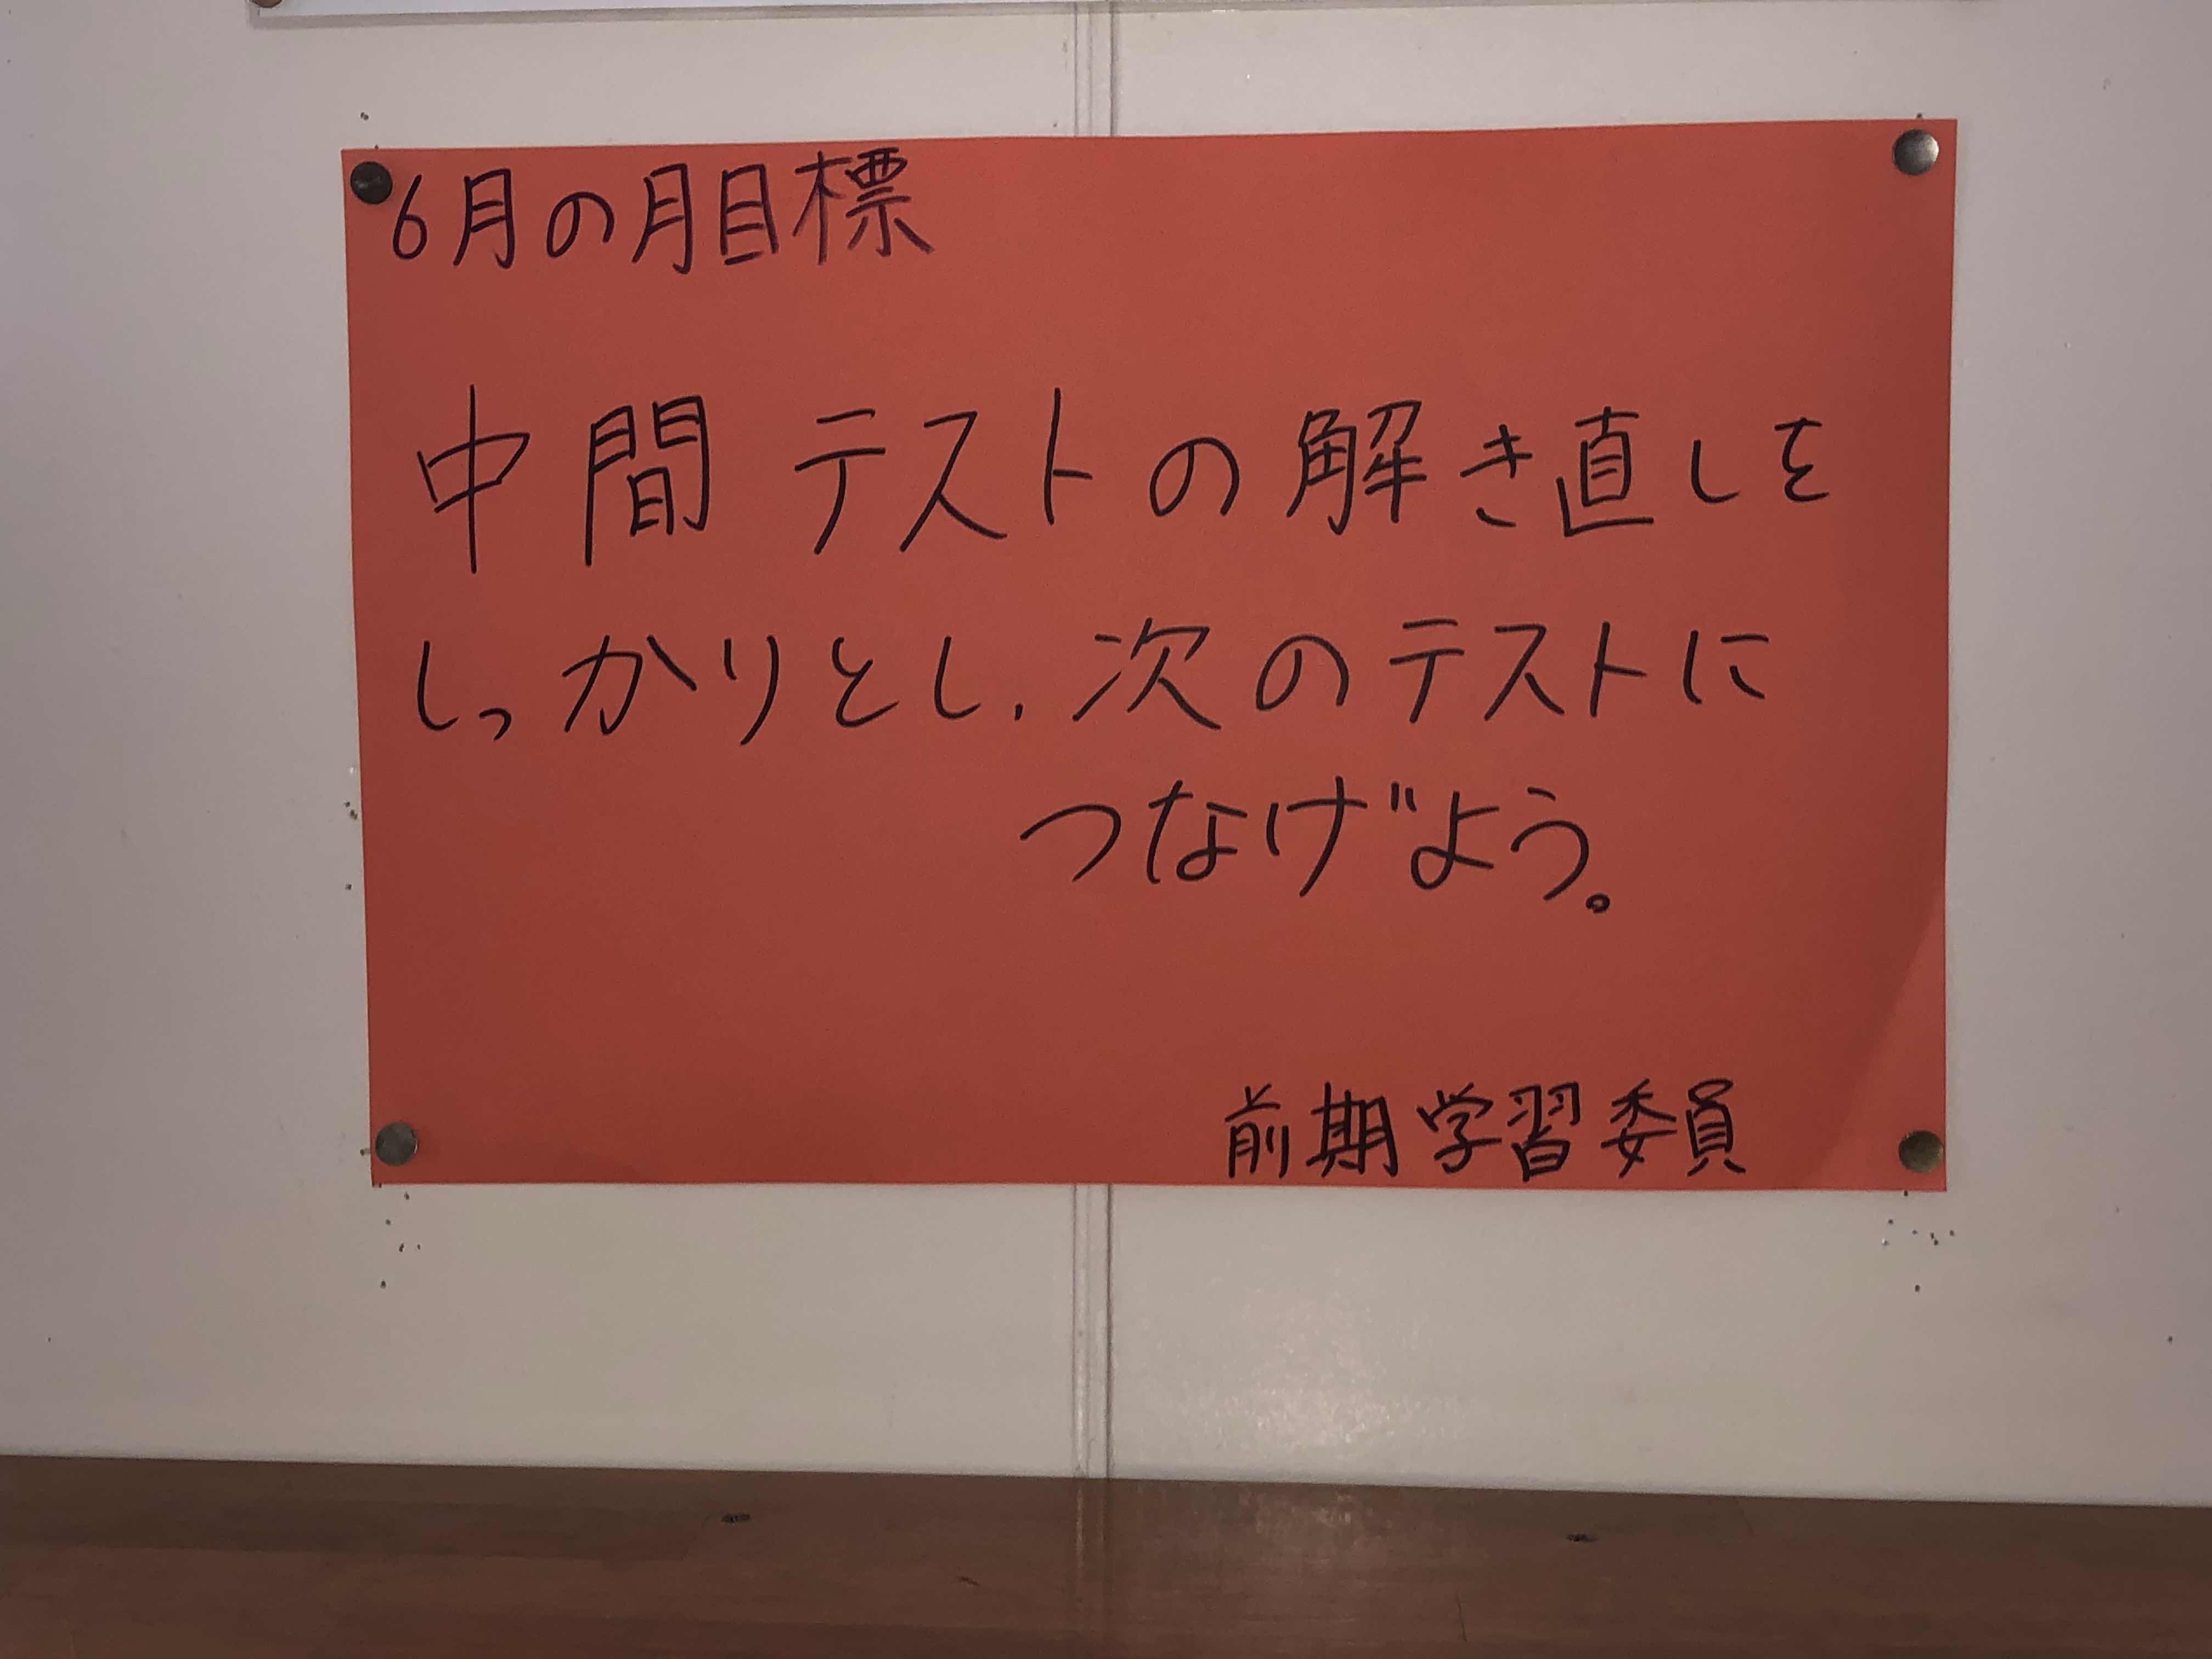 6月の月目標
中間テストの解き直しを
しっかりとし、次のテストに
つなげよう。
前期学習委員